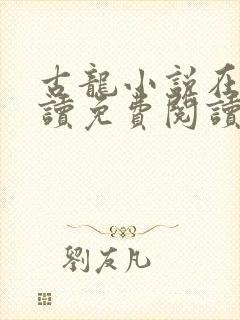 古龍小說在
讀免費閱讀
劉友凡